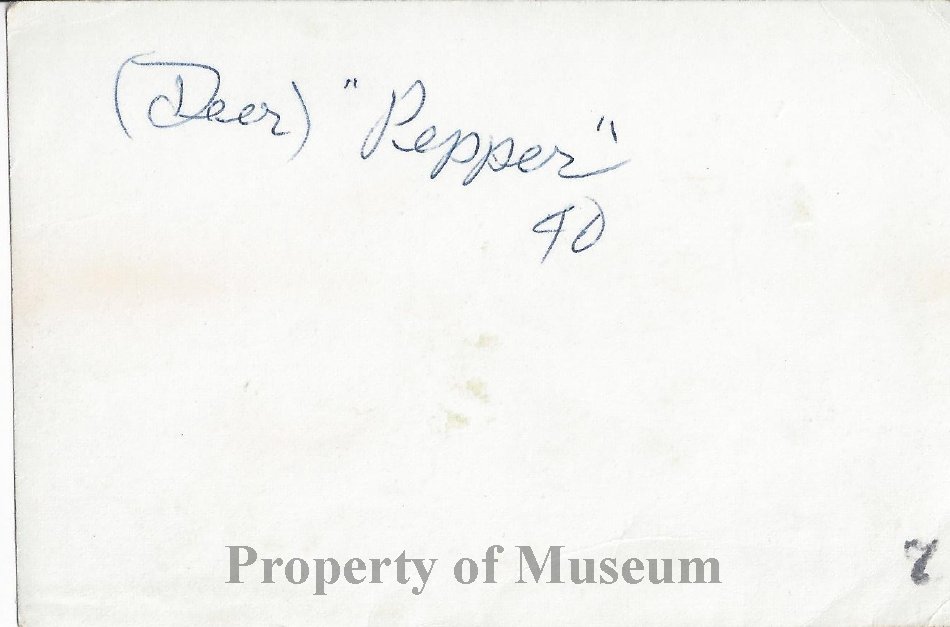 (Deer) "Pepper"
40
7
Property of Museum